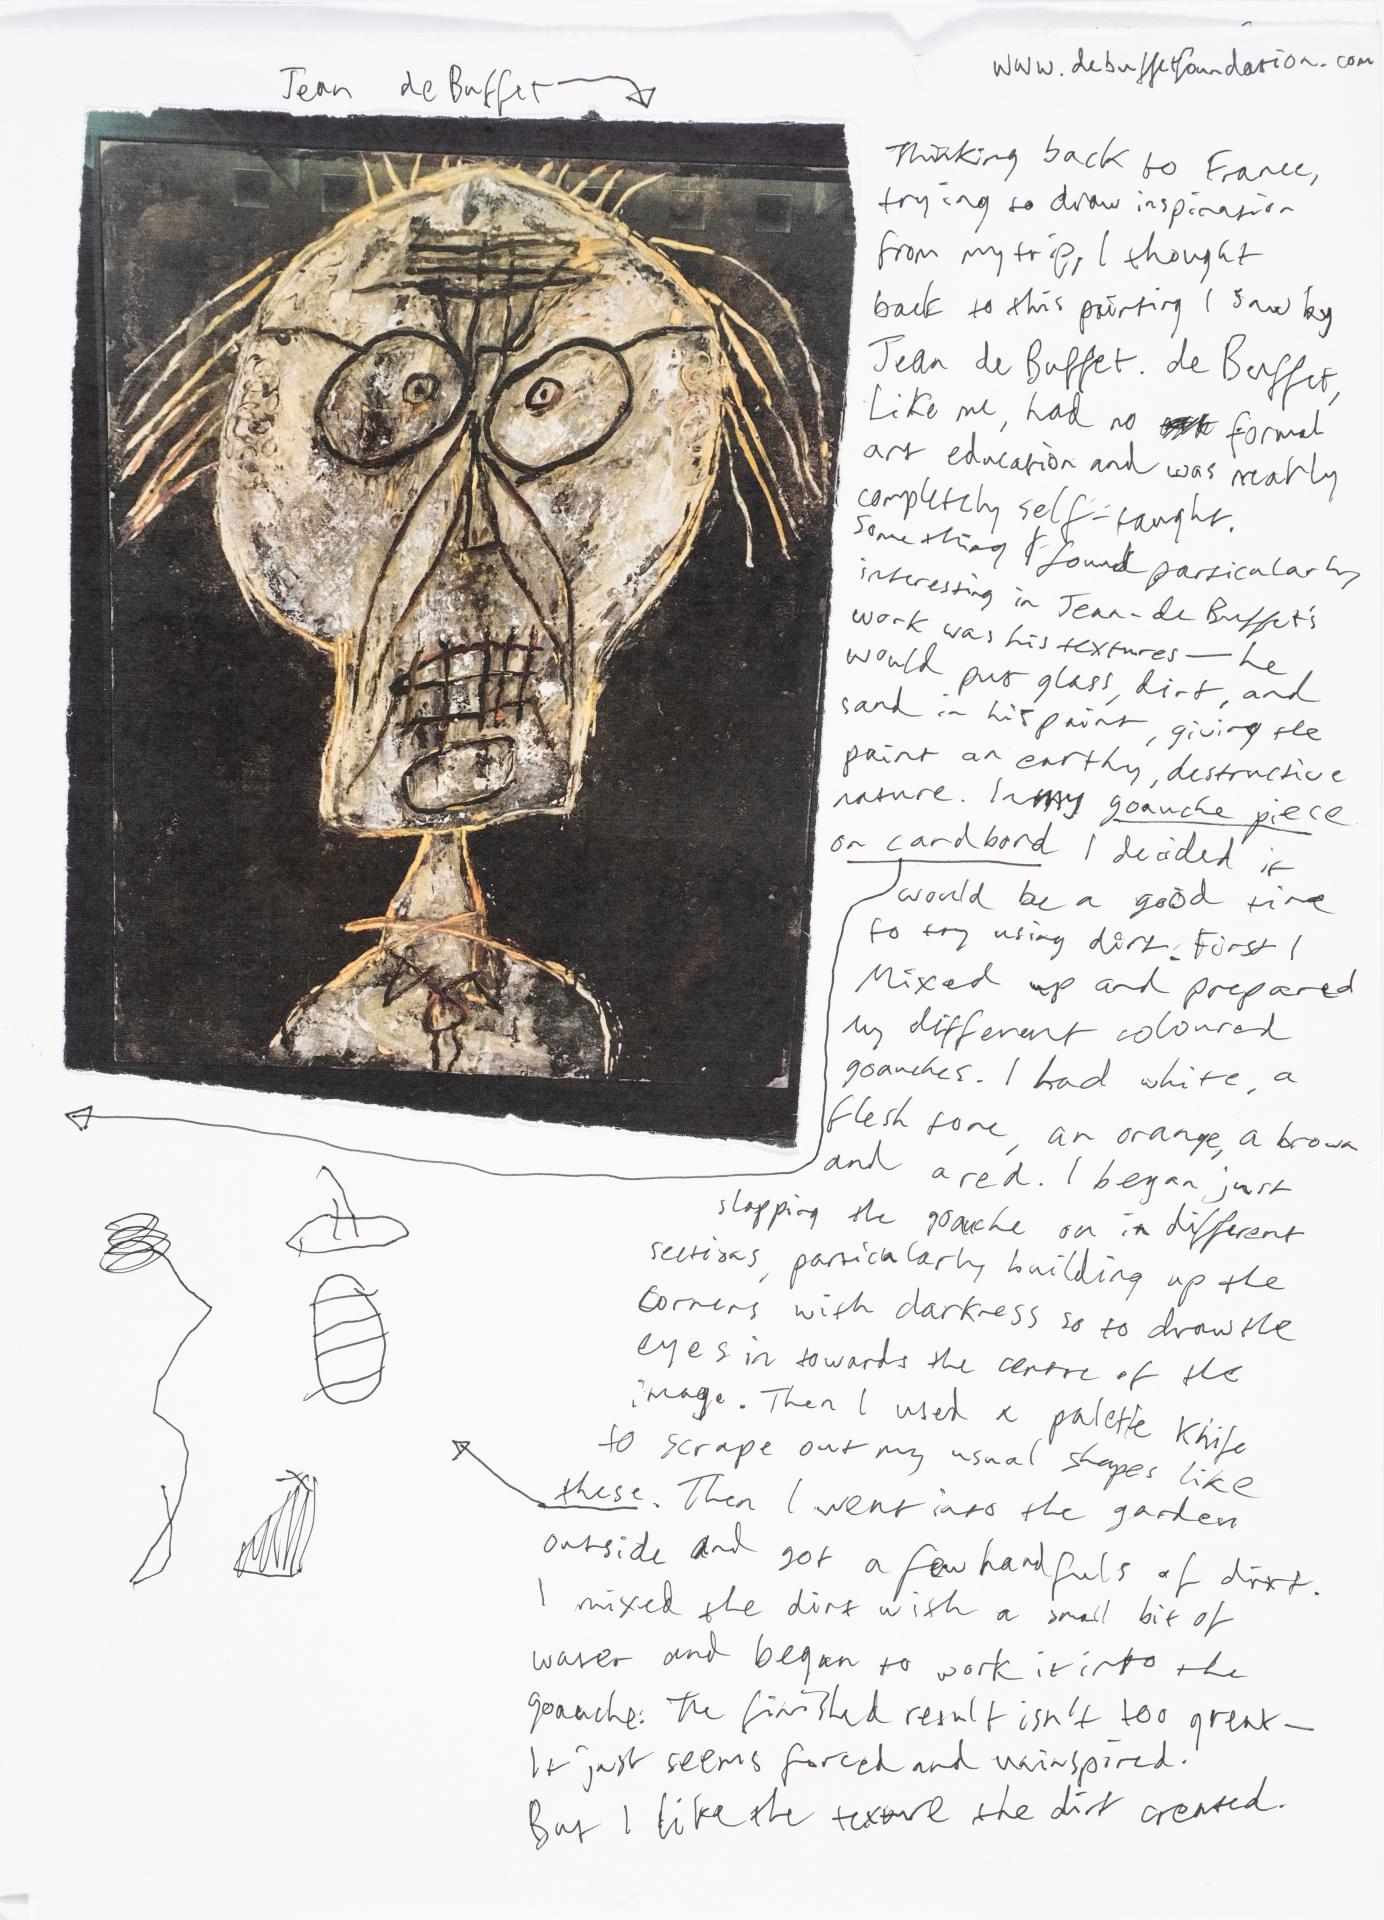 www.debuffetfoundation.com
Jean de Buffet
Thinking back to France,
trying to draw inspiration
from my trip, I thought
back to this painting I saw by
Jean de Buffet. de Buffet,
Like me, had no formal
art education and was nearly
completely self-taught.
something I found particularly
interesting in Jean-de Buffet's
work was his textures — he
would put glass, dirt, and
sand in his paint, giving the
paint an earthy, destructive
nature. In my goauche piece
on cardbord I decided it
would be a good time
to try using dirt. First I
Mixed up and prepared
my different coloured
goauches. I had white, a
flesh tone, an orange, a brown
and a red. I began just
slapping the goauche on in different
sections, particularly building up the
corners with darkness so to draw the
eyes in towards the centre of the
image. Then I used a palette knife
to scrape out my usual shapes like
these. Then I went into the garden
outside and got a few handfuls of dirt.
I mixed the dirt with a small bit of
water and began to work it into the
goauche. The finished result isn't too great —
It just seems forced and uninspired.
But I like the texture the dirt created.